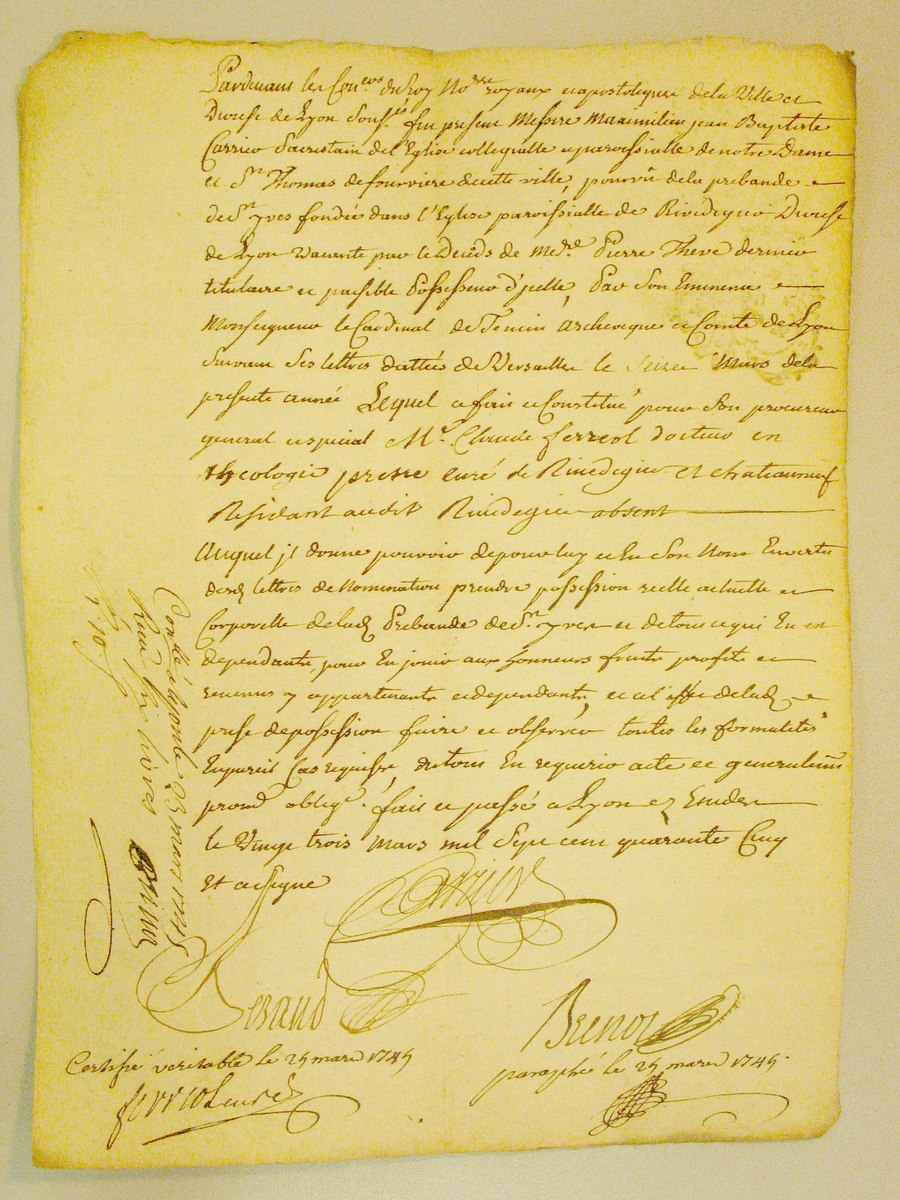 Pardevant les Con.ers du Roy No.res royaux et apostoliques de la Ville et
Diocese de Lyon Sous.és fut present Messire Maximilien jean Baptiste
Carrier Sacristain de l'Eglise collegialle et paroissialle de notre Dame
et S.t Thomas de fourviere de cette ville, pourvû de la prebande
de S.t yves fondée dans l'Eglise paroissialle de Rivedegier Diocese
de Lyon Vacante par le Deceds de Me Pierre Theve dernier
titulaire et paisible Possesseur d'jcelle, Par Son Eminence
Monseigneur le Cardinal de Tencin Archeveque et Comte de Lyon
Suivant Ses lettres dattées de Versailles le Seize Mars de la
presente année Lequel a fait et Constitué pour Son procureur
general et special M.e Claude ferreol docteur en
theologie prestre curé de Rivedegier et chateauneuf
Residant audit Rivedegier absent
Auquel jl donne pouvoir de pour luy et En Son Nom En vertu
desd lettres de Nomination prendre possession reelle actuelle et
Corporelle de lad Prebande de S.t yves et de tout ce qui En est
dependant, pour En jouir aux honneurs fruits profits et
revenus y appartenants et dependants, et a l'effet de lad
prise de possession faire et observer toutes les formalités
En pareil Cas requises, du tout En requerir acte et generalem.
prom obligé. fait et passé a Lyon ez Etudes
le Vingt trois Mars mil Sept cent quarante Cinq
Et a Signé
Carrier
Beraud
Brenot
Certifié veritable le 25 mars 1745
paraphé le 25 mars 1745
ferreol curé
Con.llé à Lyon le 23 mars 1745